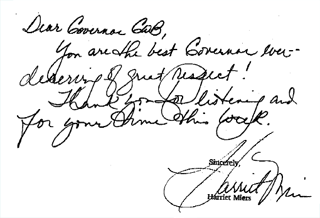 Dear Governor GWB,
You are the best Governor ever -
deserving of great respect!
Thank you for listening and
for your time this week.
Sincerely,
Harriet Miers
Harriet Miers